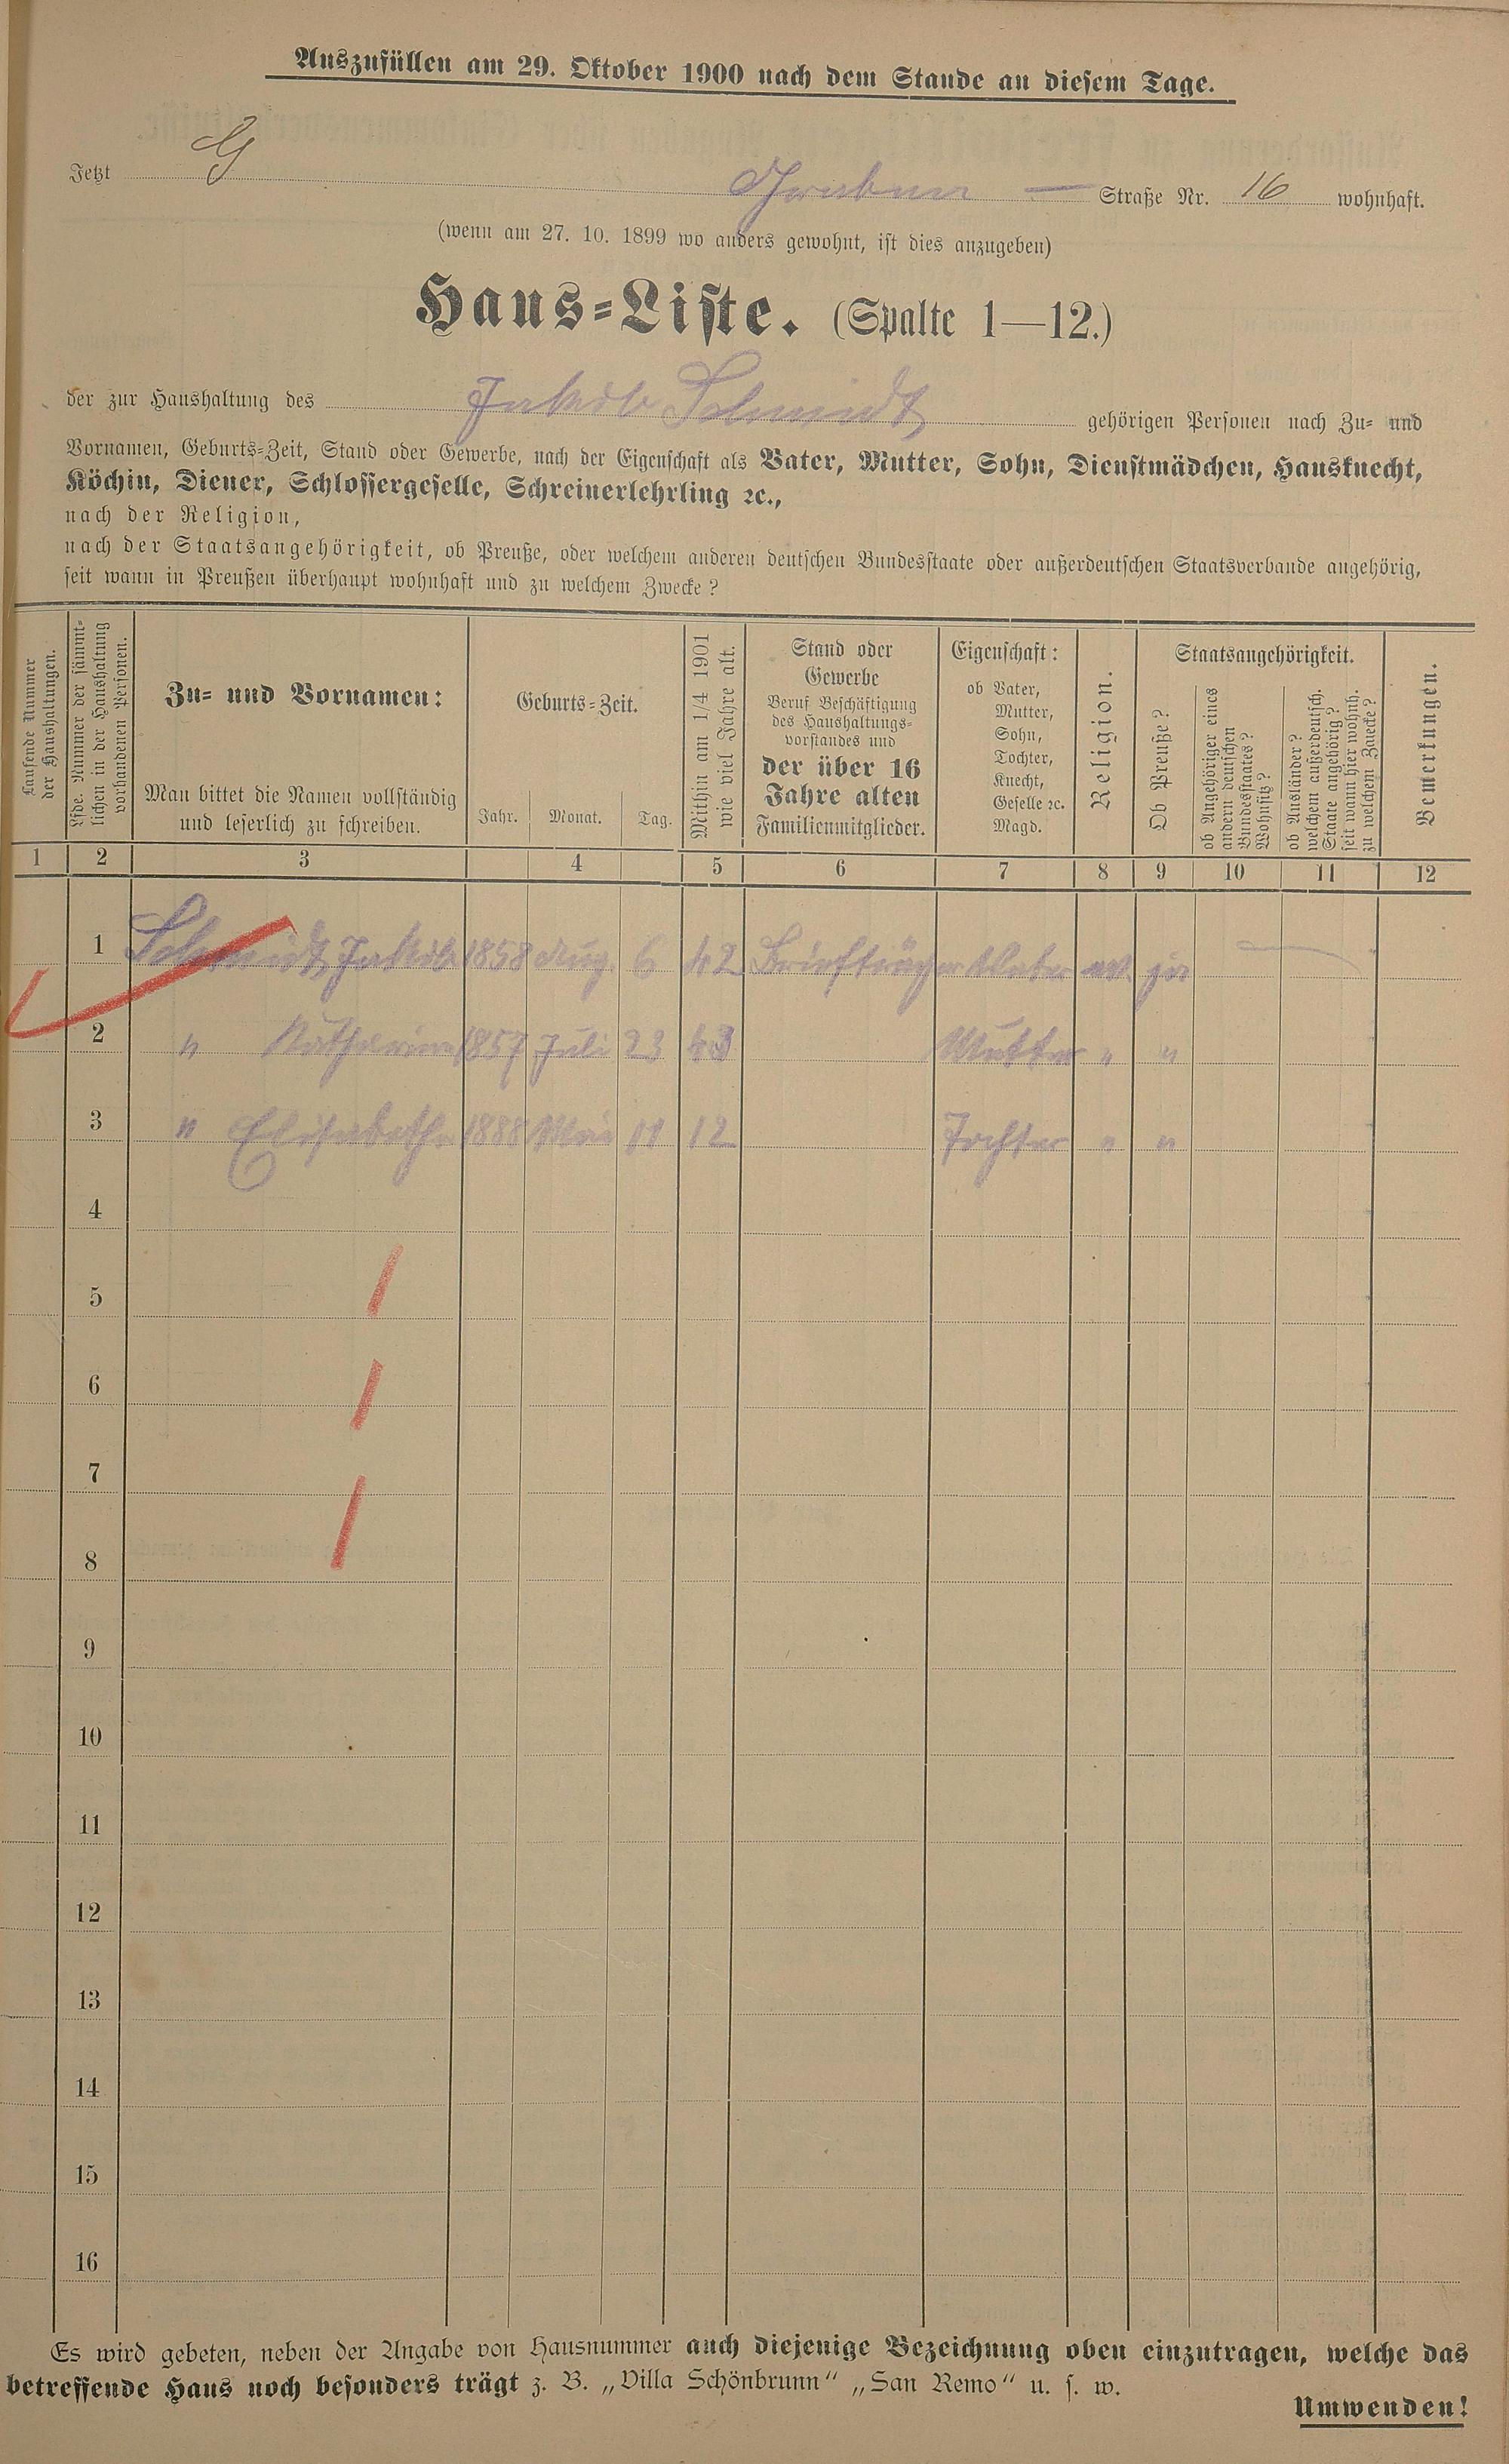 Auszufüllen am 29. Oktober 1900 nach dem Stande an diesem Tage.
Jetzt G Straße Nr. 16 wohnhaft.
(wenn am 27. 10. 1899 wo anders gewohnt, ist dies anzugeben)
Haus-Liste. (Spalte 1—12.)
der zur Haushaltung des Jakob Schmidt gehörigen Personen nach Zu- und
Vornamen, Geburts-Zeit, Stand oder Gewerbe, nach der Eigenschaft als Vater, Mutter, Sohn, Dienstmädchen, Hausknecht,
Köchin, Diener, Schlossergeselle, Schreinerlehrling ꝛc.,
nach der Religion,
nach der Staatsangehörigkeit, ob Preuße, oder welchem anderen deutschen Bundesstaate oder außerdeutschen Staatsverbande angehörig,
seit wann in Preußen überhaupt wohnhaft und zu welchem Zwecke?
Laufende Nummer
der Haushaltungen.
Lfde. Nummer der sämmt-
lichen in der Haushaltung
vorhandenen Personen.
Zu- und Vornamen:
Man bittet die Namen vollständig
und leserlich zu schreiben.
Geburts-Zeit.
Jahr. Monat. Tag.
Mithin am 1/4 1901
wie viel Jahre alt.
Stand oder
Gewerbe
Beruf Beschäftigung
des Haushaltungs-
vorstandes und
der über 16
Jahre alten
Familienmitglieder.
Eigenschaft:
ob Vater,
Mutter,
Sohn,
Tochter,
Knecht,
Geselle ꝛc.
Magd.
Religion.
Staatsangehörigkeit.
Ob Preuße?
ob Angehöriger eines
andern deutschen
Bundesstaates?
Wohnsitz?
ob Ausländer?
welchem außerdeutsch.
Staate angehörig?
seit wann hier wohnh.
zu welchem Zwecke?
Bemerkungen.
1 2 3 4 5 6 7 8 9 10 11 12
1 Schmidt, Jakob 1858 Aug. 6 42 Briefträger Vater ev. ja
2 " Katharina 1857 Juli 23 43 Mutter " "
3 " Elisabetha 1888 Mai 11 12 Tochter " "
4
5
6
7
8
9
10
11
12
13
14
15
16
Es wird gebeten, neben der Angabe von Hausnummer auch diejenige Bezeichnung oben einzutragen, welche das
betreffende Haus noch besonders trägt z. B. „Villa Schönbrunn“ „San Remo“ u. s. w.
Umwenden!